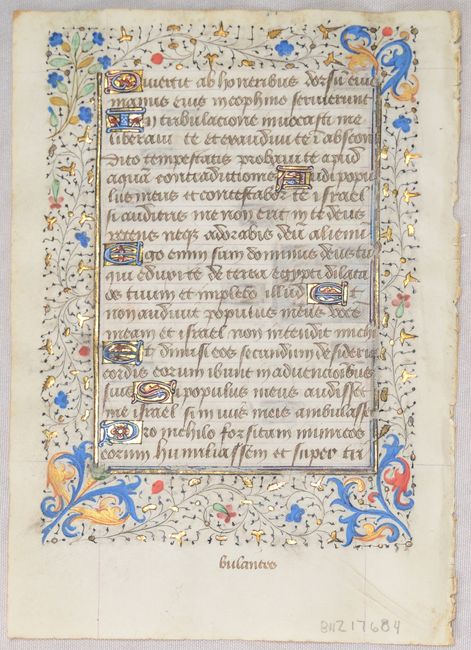 Divertit ab honeribus dorsū eius
manus eius in cophino servierunt
In tribulacione invocasti me
liberavi te et exaudivi te ī abscon
dito tempestatis probavi te apud
aquā contradictionis Audi popu
lus meus et contestabor te israel
si audieris me non erit in te deus
recens neqz adorabis deū alienū
Ego enim sum dominus deus tuus
qui eduxi te de terra egypti dilata
os tuum et implebo illud Et
non audivit populus meus voce
meam et israel non intendit michi
Et dimisi eos secundum desideria
cordis eorum ibunt in advencionibus
suis Si populus meus audisset
me israel si in viis meis ambulasset
Pro nichilo forsitam inimicos
eorum humiliassem et super tri
bulantes